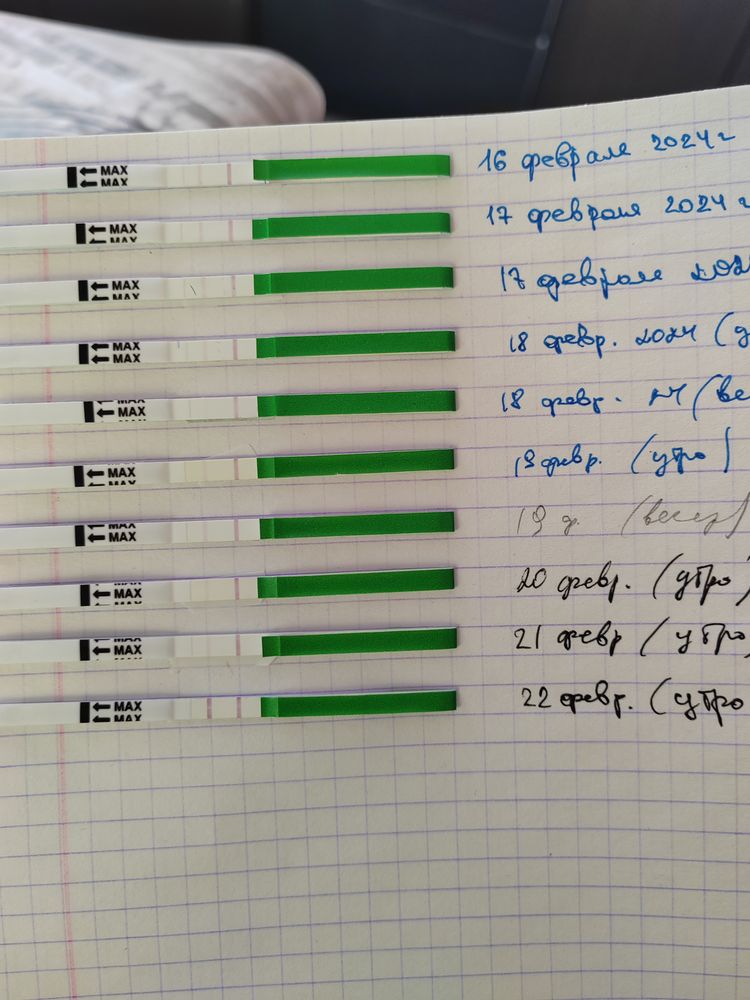 MAX
MAX
16 февраля 2024 г
MAX
MAX
17 февраля 2024 г
MAX
MAX
17 февраля 202
MAX
MAX
18 февр. 2024 (
MAX
MAX
18 февр. (ве
MAX
MAX
19 февр. (утро)
MAX
MAX
19 ф. (вечер)
MAX
MAX
MAX
20 февр. (утро)
MAX
MAX
MAX
21 февр (утро)
MAX
MAX
22 февр. (утро